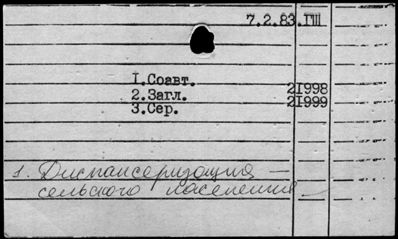 7.2.83.ГШ
1.Соавт.
2.Загл. 21998
3.Сер. 21999
1. Диспансеризация —
сельского населения